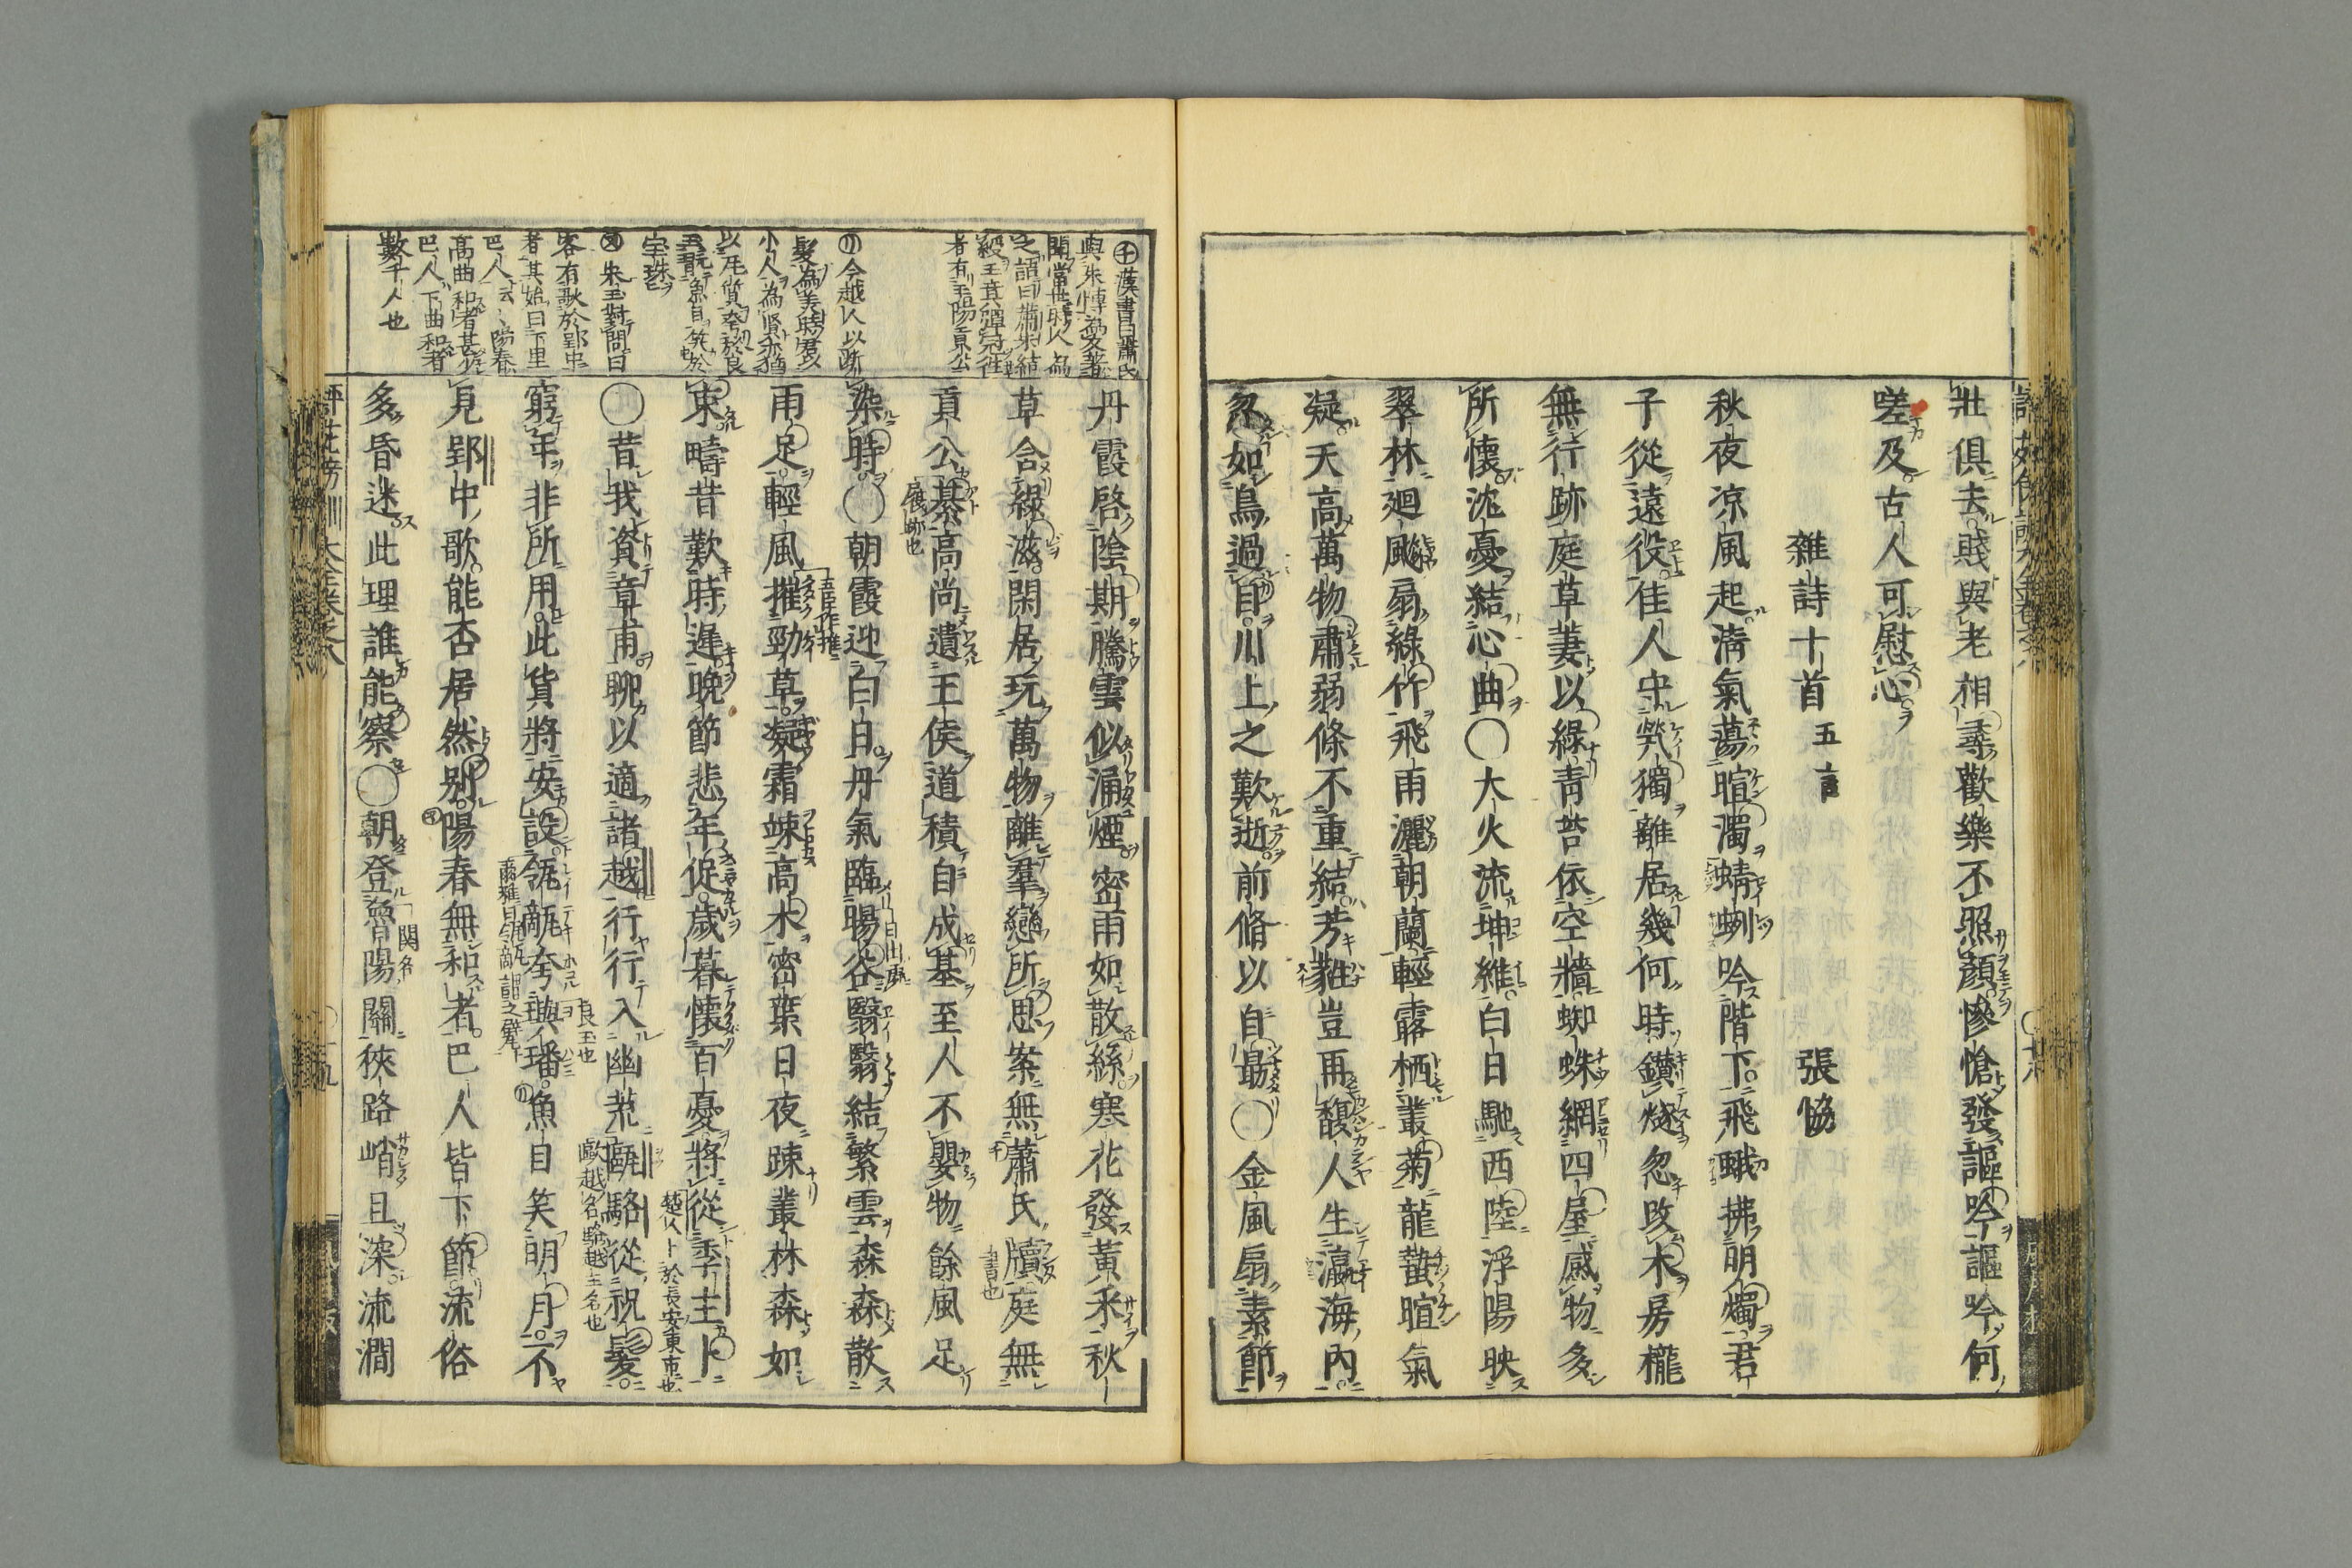 壯俱去賤與老相尋歡樂不照顏慘愴發謳吟謳吟何
嗟及古人可慰心
雜詩十首 五言 張協
秋夜凉風起淸氣蕩暄濁蜻蛚吟階下飛蛾拂明燭君
子從遠役佳人守煢獨離居幾何時鑽燧忽改木房櫳
無行跡庭草萋以綠靑苔依空牆蜘蛛網四屋感物多
所懷沈憂結心曲〇大火流坤維白日馳西陸浮陽映
翠林廻飇扇綠竹飛雨灑朝蘭輕露栖叢菊龍蟄暄氣
凝天高萬物肅弱條不重結芳蕤豈再馥人生瀛海內
忽如鳥過目川上之歎逝前脩以自勗〇金風扇素節
㊉漢書曰蕭氏
與朱博為友著
聞當世時人為
之語曰蕭朱結
綬王貢彈冠往
者有王陽貢公
今越人以斷
髮為美時君以
小人為賢亦猶
以瓦質夸於良
玉魚目笑於
宝珠
宋玉對問曰
客有歌於郢中
者其始曰下里
巴人云〻陽春
高曲和者甚少
巴人下曲和者
數千人也
丹霞啓陰期騰雲似涌煙密雨如散絲寒花發黃采秋
草含綠滋閑居玩萬物離羣戀所思案無蕭氏牘庭無
貢公綦高尚遺王侯道積自成基至人不嬰物餘風足
染時〇朝霞迎白日丹氣臨暘谷翳翳結繁雲森森散
雨足輕風摧勁草凝霜竦高木密葉日夜踈叢林森如
束疇昔歎時遲晚節悲年促歲暮懷百憂將從季主卜
〇昔我資章甫聊以適諸越行行入幽荒甌駱從祝髮
窮年非所用此貨將安設瓴甋夸璵璠魚目笑明月不
見郢中歌能否居然別陽春無和者巴人皆下節流俗
多昏迷此理誰能察〇朝登魯陽關狹路峭且深流澗